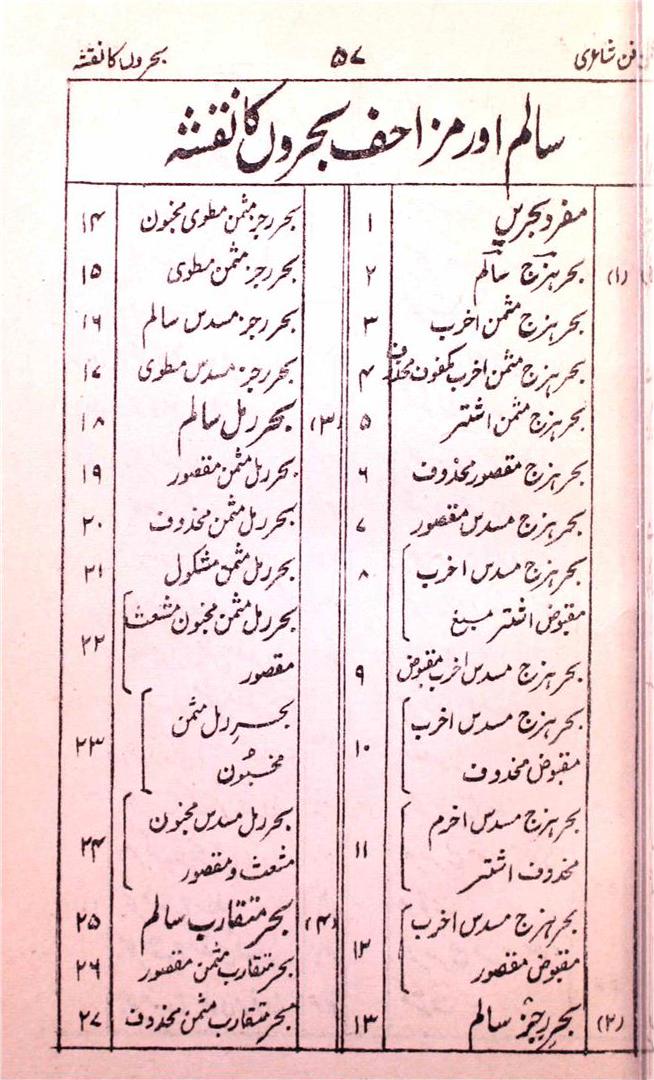 فن شاعری ۵۷ بحروں کا نقشہ
سالم اور مزاحف بحروں کا نقشہ
مفرد بحریں ۱
(۱) بحر ہزج سالم ۲
بحر ہزج مثمن اخرب ۳
بحر ہزج مثمن اخرب مکفوف محذوف ۴
بحر ہزج مثمن اشتر ۵
بحر ہزج مقصور محذوف ۶
بحر ہزج مسدس مقصور ۷
بحر ہزج مسدس اخرب ۸
مقبوض اشتر مسبغ
بحر ہزج مسدس اخرب مقبوض ۹
بحر ہزج مسدس اخرب ۱۰
مقبوض محذوف
بحر ہزج مسدس اخرم ۱۱
محذوف اشتر
بحر ہزج مسدس اخرب ۱۲
مقبوض مقصور
(۲) بحر رجز سالم ۱۳
بحر رجز مثمن مطوی مخبون ۱۴
بحر رجز مثمن مطوی ۱۵
بحر رجز مسدس سالم ۱۶
بحر رجز مسدس مطوی ۱۷
(۳) بحر رمل سالم ۱۸
بحر رمل مثمن مقصور ۱۹
بحر رمل مثمن محذوف ۲۰
بحر رمل مثمن مشکول ۲۱
بحر رمل مثمن مخبون مشعث ۲۲
مقصور
بحرِ رمل مثمن ۲۳
مخبُون
بحر رمل مسدس مخبون ۲۴
مشعث و مقصور
(۴) بحر متقارب سالم ۲۵
بحر متقارب مثمن مقصور ۲۶
بحر متقارب مثمن محذوف ۲۷